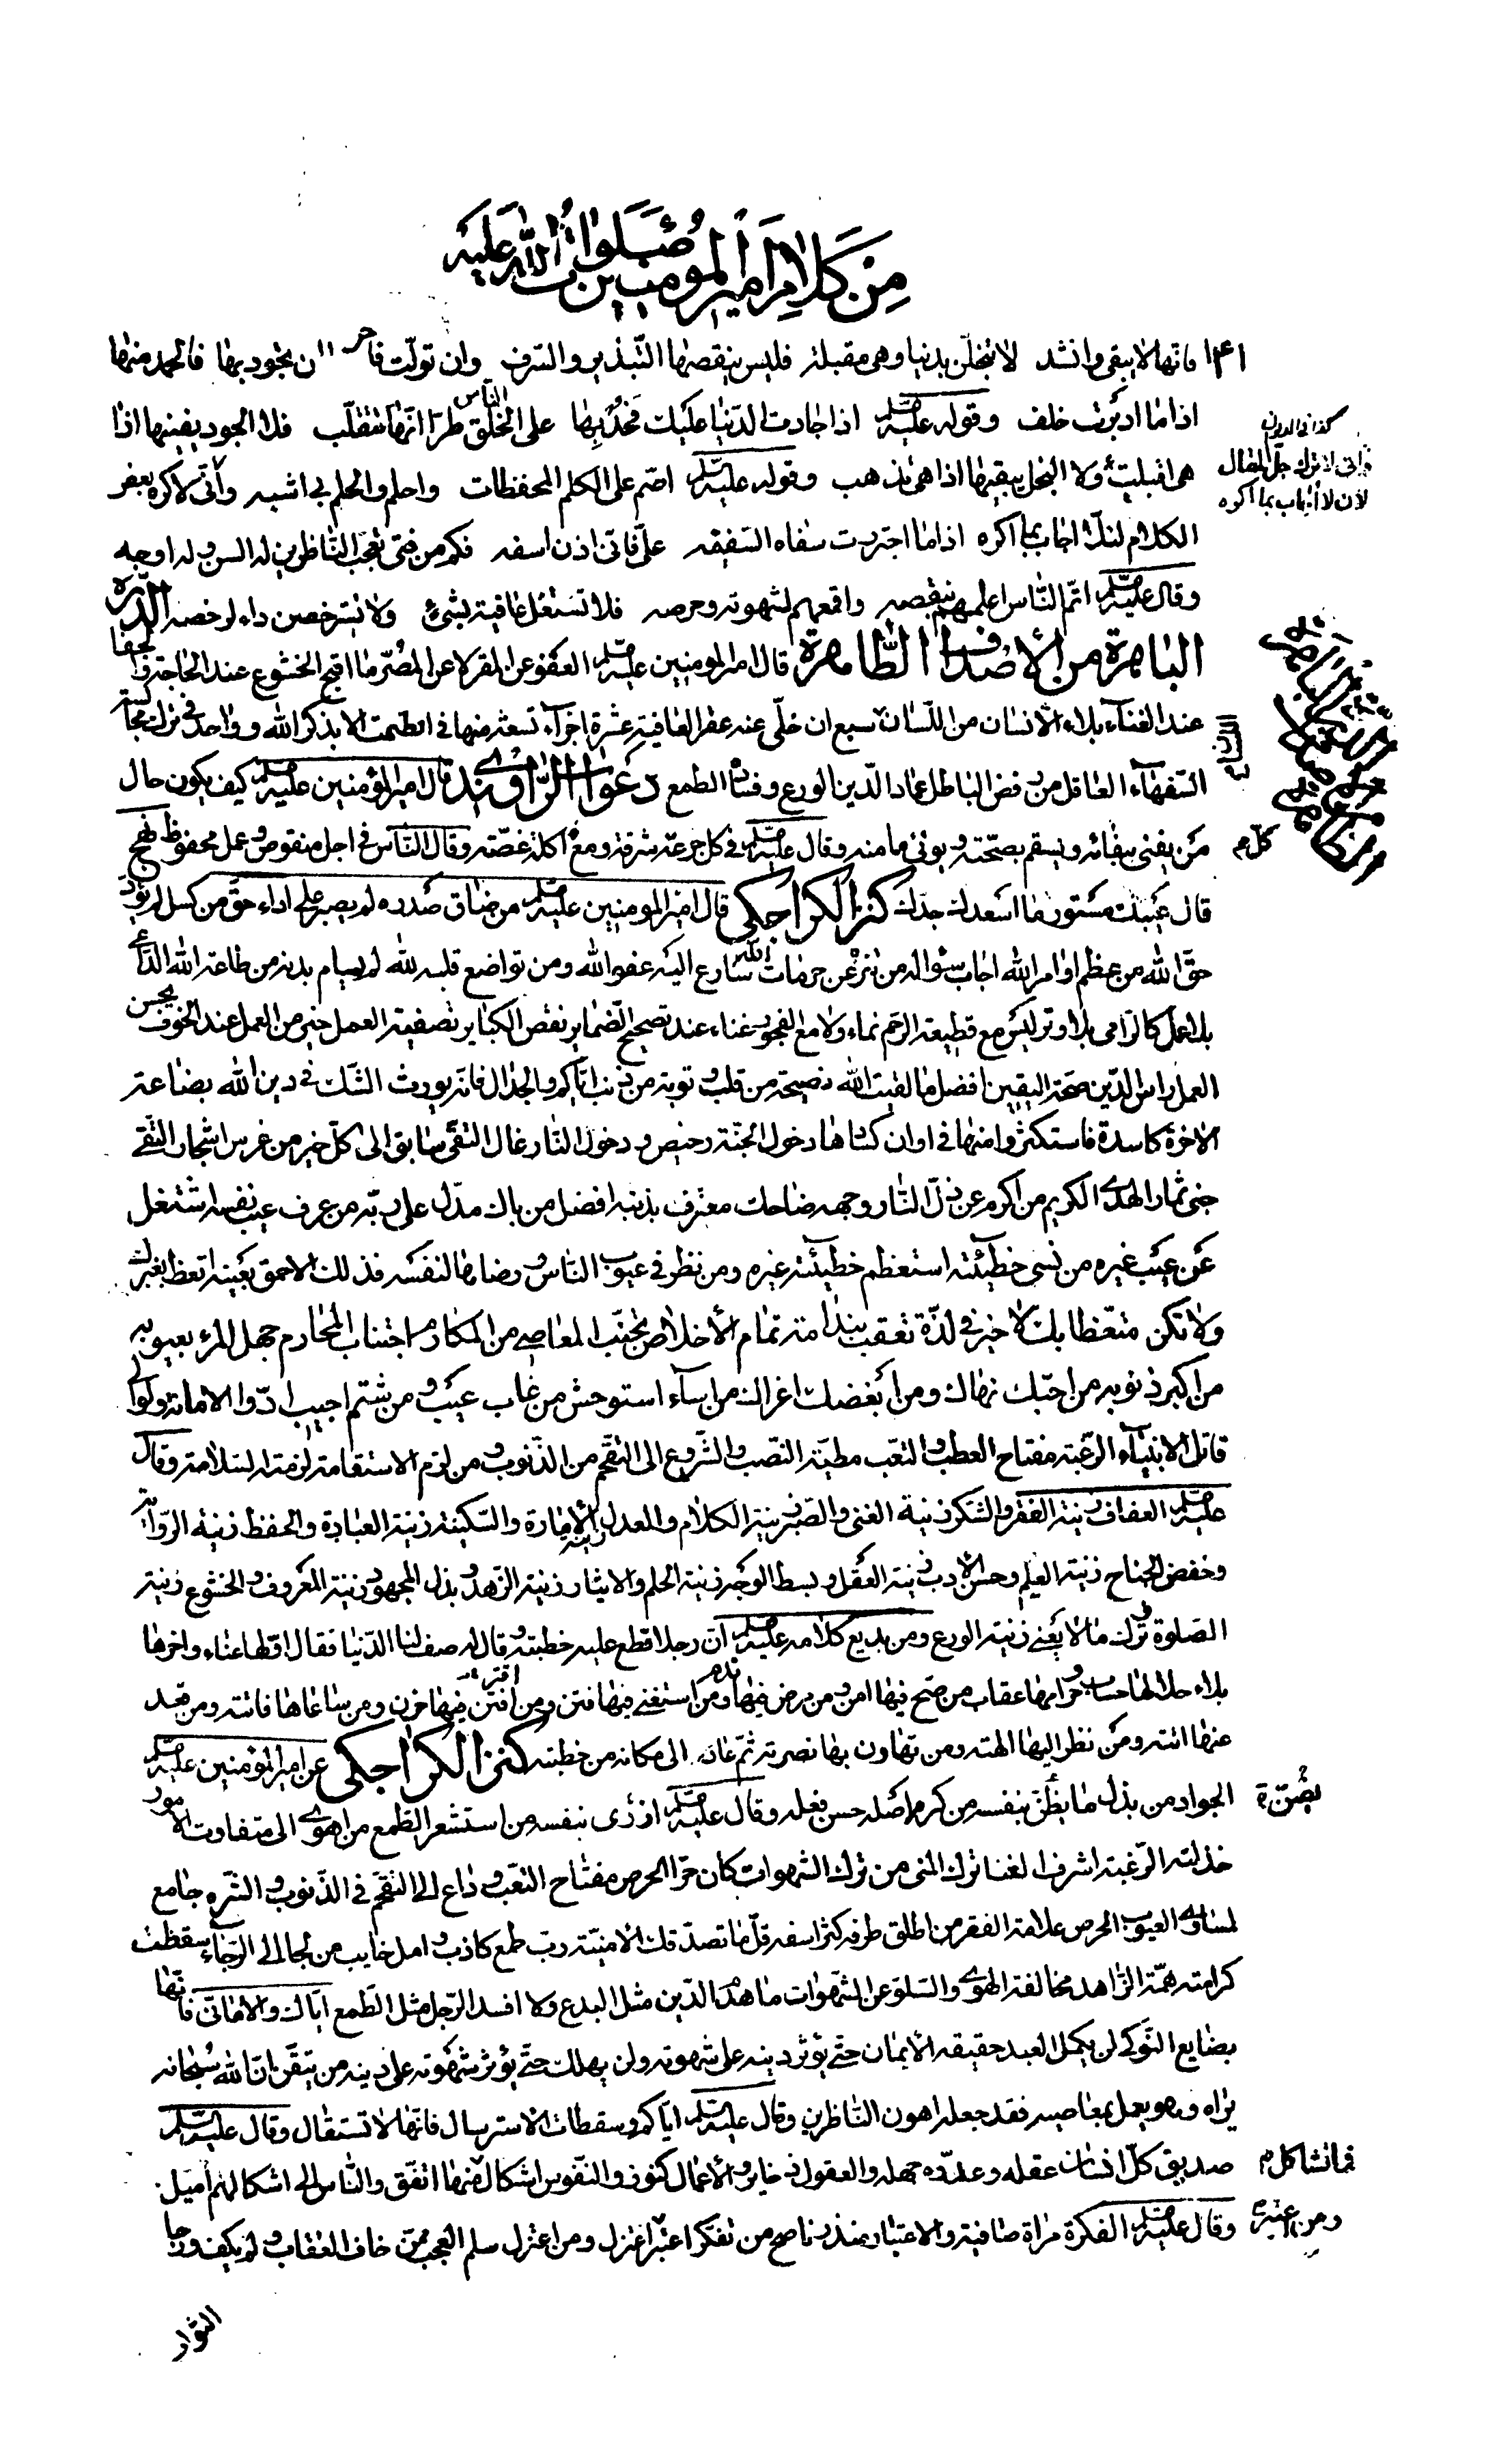 من كلام أمير المؤمنين صلوات الله عليه
١٤١ فانها لا يبقى وانشد لا تبخلن بدنيا وهى مقبلة فليس ينقصها التبذير والسرف وان تولت فاحر ان تجود بها فالحمد منها
اذا ما ادبرت خلف وقوله عليه السلم اذا جادت الدنيا عليك فجد بها على الخلق طرا انها تتقلب فلا الجود يفنيها اذا
الناس
هى اقبلت ولا البخل يبقيها اذا هى تذهب وقوله عليه السلم اصم على الكلم المحفظات واحلم والحلم بى اشبه وانى لاكره بعض
كذا فى الديوان
وانى لاترك جل المقال
لان لا اجاب بما اكره
الكلام لئلا اجاب بما اكره اذا ما اجتررت سفاه السفيه على فانى اذن اسفه فكم من فتى تعجب الناظرين له السن وله اوجه
وقال عليه السلم اتم الناس اعلمهم بنقصه واقمعهم لشهوته وحرصه فلا تستغل عافية بشئ ولا تسترخصن داء لرخصه الدرة
الباهرة من الأصداف الطاهرة قال امير المومنين عليه السلم العفو عن المقر لا عن المصر ما اقبح الخشوع عند الحاجة والجفا
عند الغناء بلاء الانسان من اللسان سبع ان خلى عنه عقر العافية عشرة اجزاء تسعة منها فى الصمت الا بذكر الله وواحد فى ترك مجالسة
السفهاء العاقل من رفض الباطل عماد الدين الورع وفساده الطمع دعوات الراوندى قال امير المؤمنين عليه السلم كيف يكون حال
من يفنى ببقائه ويسقم بصحته ويوتى ما منه وقال عليه السلم فى كل جرعة شرقة ومع كل اكلة غصة وقال الناس فى اجل منقوص وعمل محفوظ نهج
كل م
قال عيبك مستور ما اسعدك جدك كنز الكراجكى قال امير المومنين عليه السلم من ضاق صدره لم يصبر على اداء حق من كسل لم يؤد
حق الله من عظم اوامر الله اجاب سؤاله من تنزه عن حرمات الله سارع اليه عفو الله ومن تواضع قلبه لله لم يسام بدنه من طاعة الله الداعى
بلا عمل كالرامى بلا وتر ليس مع قطيعة الرحم نماء ولا مع الفجور غناء عند تصحيح الضماير تغفر الكباير تصفية العمل خير من العمل عند الخوف يحسن
العمل راس الدين صحة اليقين افضل ما لقيت الله به نصيحة من قلب وتوبة من ذنب اياكم والجدال فانه يورث الشك فى دين الله بضاعة
الاخرة كاسدة فاستكثروا منها فى اوان كسادها دخول الجنة رخيص ودخول النار غال التقى سابق الى كل خير من غرس اشجار التقى
جنى ثمار الهدى الكريم من اكرم عن ذل النار وجهه ضاحك معترف بذنبه افضل من باك مدل على ربه من عرف عيب نفسه اشتغل
عن عيب غيره من نسى خطيئته استعظم خطيئة غيره ومن نظر فى عيوب الناس ورضاها لنفسه فذلك الاحمق بعينه اتعظ بغيرك
ولا تكن متعظا بك لا خير فى لذة تعقب ندامة تمام الأخلاص تجنب المعاصى من المكارم اجتناب المحارم جهل المرء بعيوبه
من اكبر ذنوبه من احبك نهاك ومن ابغضك اغراك من اساء استوحش من عاب عيب ومن شتم اجيب ادوا الامانة ولو الى
قاتل الانبياء الرغبة مفتاح العطب والتعب مطية النصب والشروع الى التقحم من الذنوب ومن لزم الاستقامة لزمته السلامة وقال
عليه السلم العفاف زينة الفقر والشكر زينة الغنى والصبر زينة الكلام والعدل زينة الإمارة والسكينة زينة العبادة والحفظ زينة الرواية
وخفض الجناح زينة العلم وحسن الأدب زينة العقل وبسط الوجه زينة الحلم والايثار زينة الزهد وبذل المجهود زينة المعروف والخشوع زينة
الصلوة وترك ما لا يعنى زينة الورع ومن بديع كلامه عليه السلم ان رجلا قطع عليه خطبته وقال له صف لنا الدنيا فقال اولها عناء واخرها
بلاء حلالها حساب وحرامها عقاب من صح فيها امن ومن مرض فيها ندم ومن استغنى فيها فتن ومن افتقر فيها حزن ومن ساعاها فاتته ومن قعد
عنها اتته ومن نظر اليها الهته ومن تهاون بها نصرته ثم عاد الى مكانه من خطبته كنز الكراجكى عن امير المؤمنين عليه السلم
الجواد من بذل ما يضن بنفسه من كرم اصله حسن فعله وقال عليه السلم ازرى بنفسه من استشعر الطمع من اهوى الى متفاوت الامور
خذلته الرغبة اشرف الغنا ترك المنى من ترك الشهوات كان حرا الحرص مفتاح التعب وداع الى التقحم فى الذنوب والشره جامع
لمساوى العيوب الحرص علامة الفقر من اطلق طرفه كثر اسفه قل ما تصدقك الامنية رب طمع كاذب وامل خايب من لجا الى الرجاء سقطت
كرامته همة الزاهد مخالفة الهوى والسلو عن الشهوات ما هدم الدين مثل البدع ولا افسد الرجل مثل الطمع اياك والامانى فانها
بضايع النوكى لن يكمل العبد حقيقة الايمان حتى يؤثر دينه على شهوته ولن يهلك حتى يؤثر شهوته على دينه من تيقن ان الله سبحانه
يراه وهو يعمل بمعاصيه فقد جعله اهون الناظرين وقال عليه السلم اياكم وسقطات الاسترسال فانها لا تستقال وقال عليه السلم
صديق كل انسان عقله وعدوه جهله والعقول ذخاير والاعمال كنوز والنفوس اشكال فما تشاكل منها اتفق والناس الى اشكالهم أميل
وقال عليه السلم الفكرة مراة صافية والاعتبار منذر ناصح من تفكر اعتبر ومن اعتبر اعتزل ومن اعتزل سلم العجب ممن خاف العقاب ولم يكف ورجا
الثواب